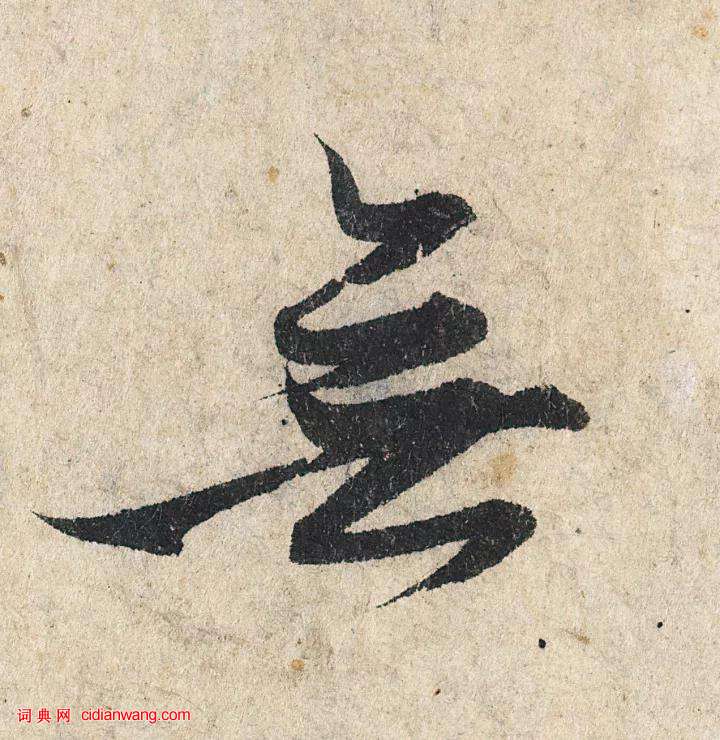 無
词典网 cidianwang.com